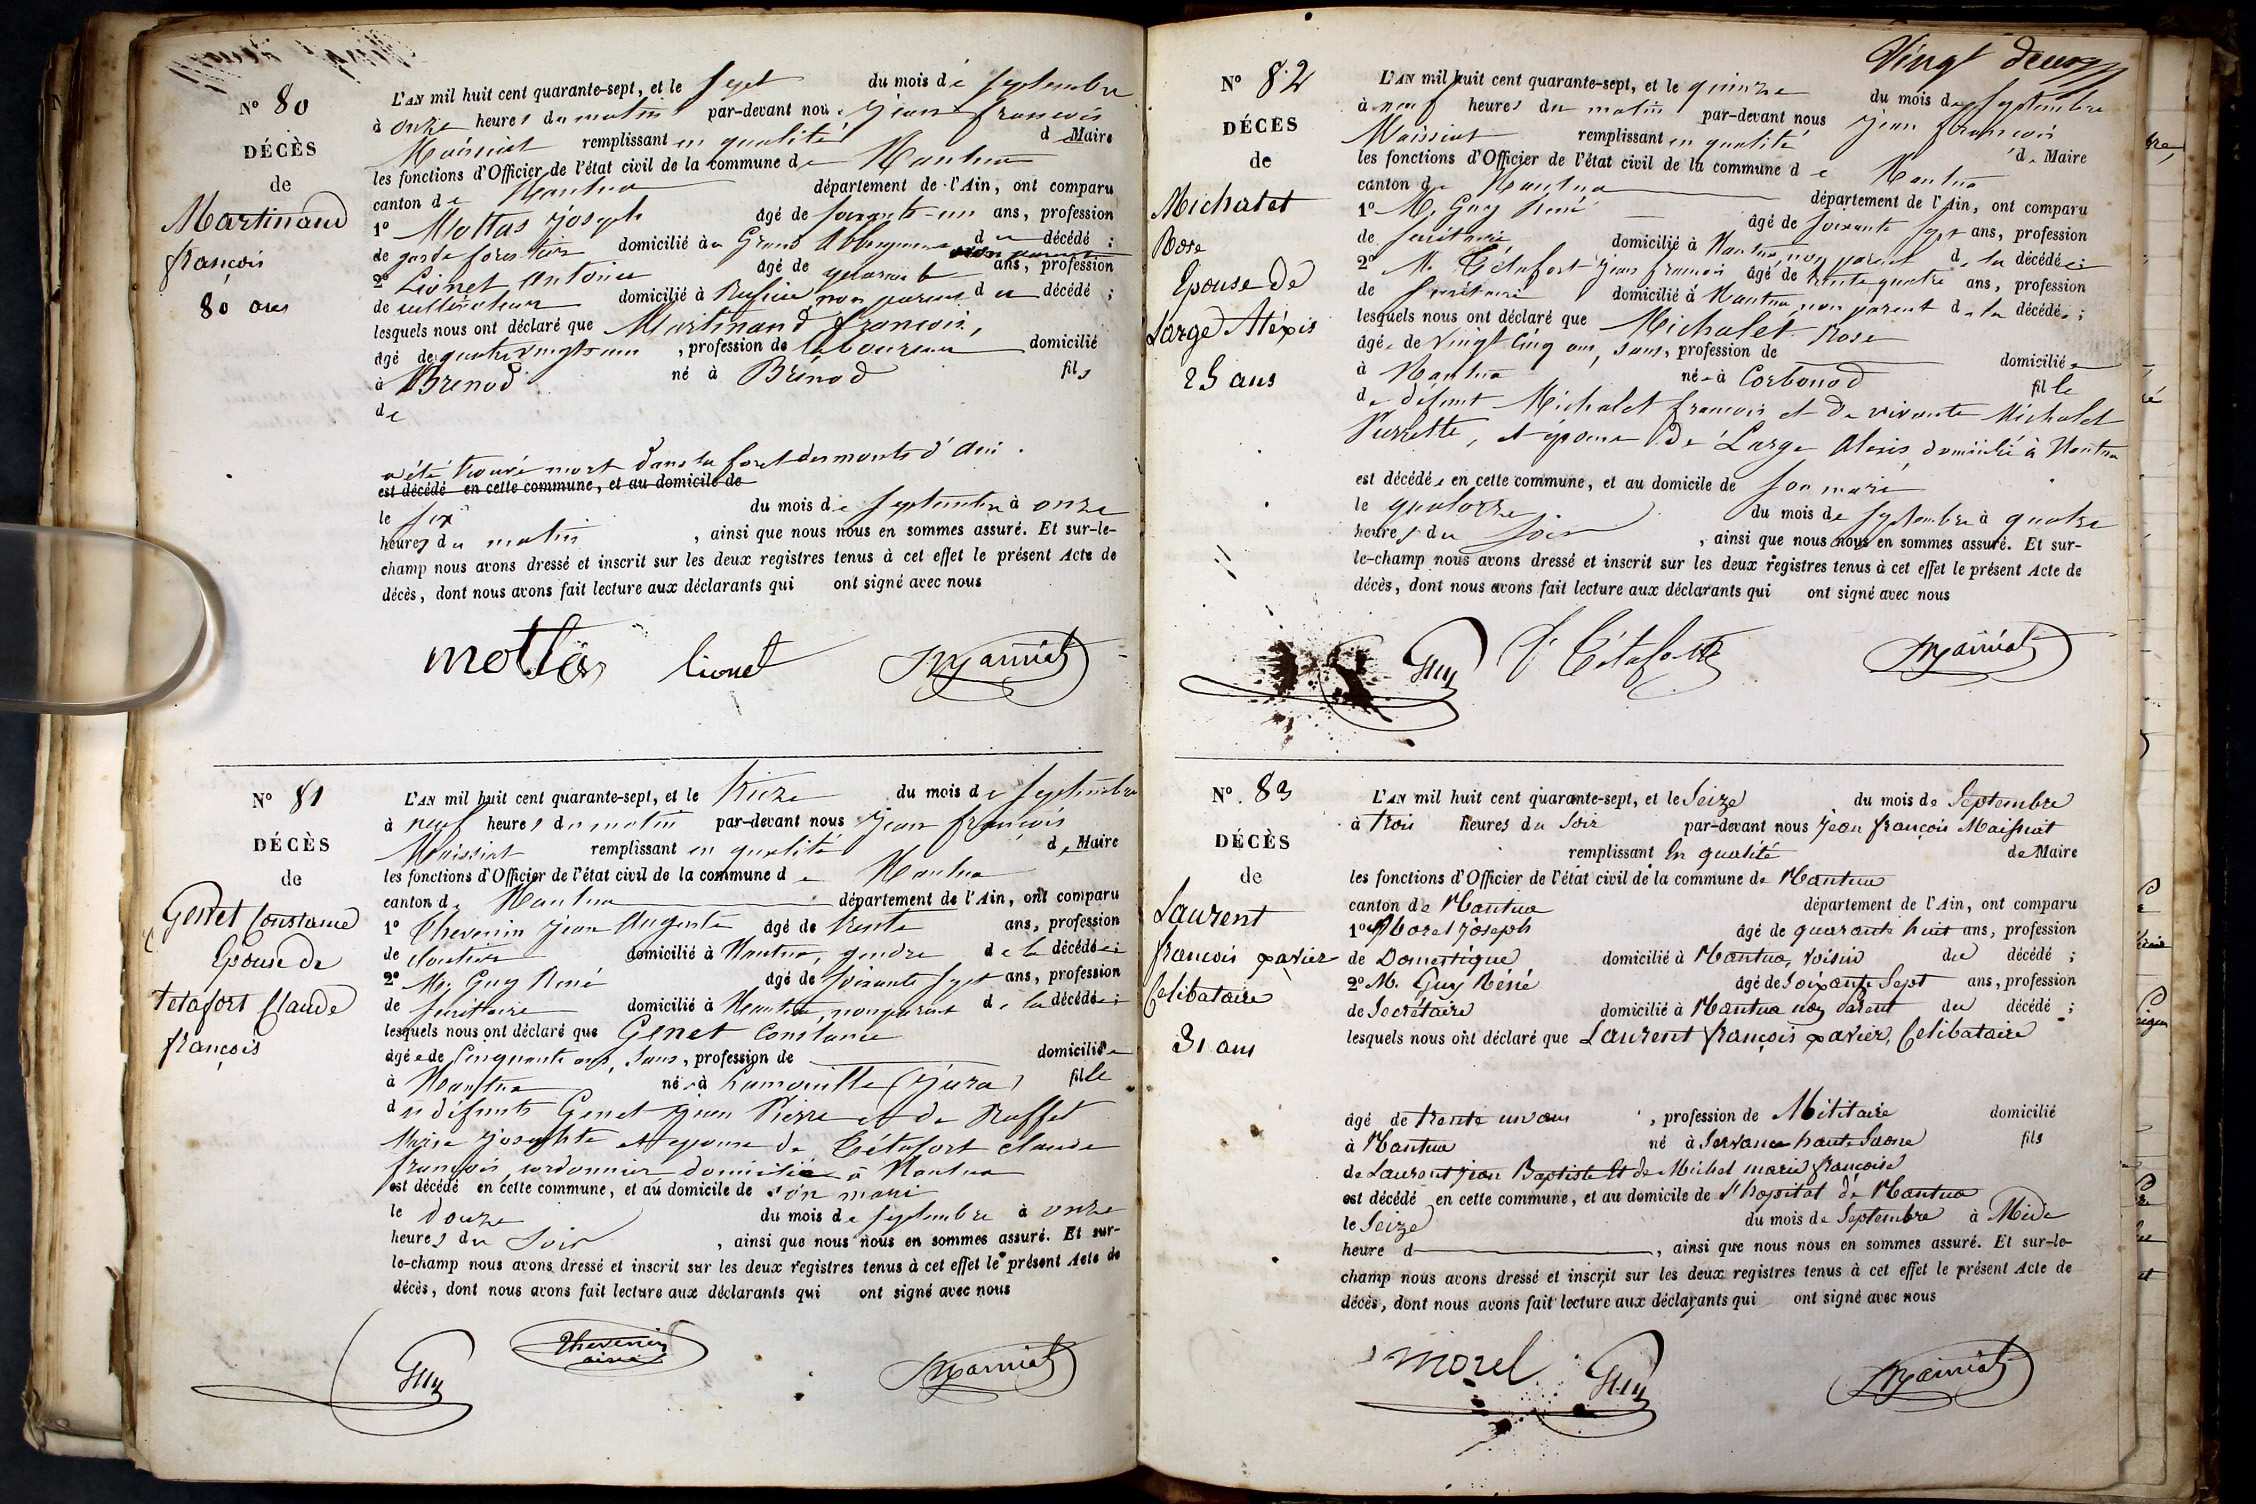 Nº 80
DÉCÈS
de
Martinand
françois
80 ans
L'AN mil huit cent quarante-sept, et le sept du mois de septembre
à onze heures du matin par-devant nous Jean françois
Maissiat remplissant en qualité de Maire
les fonctions d'Officier de l'état civil de la commune de Nantua
canton de Nantua département de l'Ain, ont comparu
1º Mottas Joseph âgé de soixante-un ans, profession
de garde forestier domicilié à Grand Abergement du décédé ;
2º Lionet Antoine âgé de quarante ans, profession
de cultivateur domicilié à Ruffieu non parent du décédé ;
lesquels nous ont déclaré que Martinand françois,
âgé de quatre vingts ans, profession de laboureur domicilié
à Brenod né à Brenod fils
de
a été trouvé mort dans la foret des monts d'ain.
est décédé en cette commune, et au domicile de
le six du mois de septembre à onze
heures du matin, ainsi que nous nous en sommes assuré. Et sur-le-
champ nous avons dressé et inscrit sur les deux registres tenus à cet effet le présent Acte de
décès, dont nous avons fait lecture aux déclarants qui ont signé avec nous
mottas lionet Maissiat
Nº 81
DÉCÈS
de
Genet Constance
Epouse de
Tetafort Claude
françois
L'AN mil huit cent quarante-sept, et le treize du mois de septembre
à neuf heures du matin par-devant nous Jean françois
Maissiat remplissant en qualité de Maire
les fonctions d'Officier de l'état civil de la commune de Nantua
canton de Nantua département de l'Ain, ont comparu
1º Thevenin Jean Auguste âgé de trente ans, profession
de cloutier domicilié à Nantua, gendre de la décédée ;
2º M. Guy René âgé de soixante sept ans, profession
de secrétaire domicilié à Nantua, non parent de la décédée ;
lesquels nous ont déclaré que Genet Constance
âgée de cinquante ans, sans, profession de domiciliée
à Nantua née à Lamouille (Jura) fille
des défunts Genet Jean Pierre et de Ruffet
Marie Josephte et épouse de Tétafort claude
françois, cordonnier domicilié à Nantua
est décédé en cette commune, et au domicile de son mari
le douze du mois de septembre à onze
heures du soir, ainsi que nous nous en sommes assuré. Et sur-
le-champ nous avons dressé et inscrit sur les deux registres tenus à cet effet le présent Acte de
décès, dont nous avons fait lecture aux déclarants qui ont signé avec nous
Guy Thevenin ainé Maissiat
Vingt deux
Nº 82
DÉCÈS
de
Michalet
Rose
Epouse de
Large Aléxis
25 ans
L'AN mil huit cent quarante-sept, et le quinze du mois de septembre
à neuf heures du matin par-devant nous Jean françois
Maissiat remplissant en qualité de Maire
les fonctions d'Officier de l'état civil de la commune de Nantua
canton de Nantua département de l'Ain, ont comparu
1º M. Guy René âgé de soixante sept ans, profession
de secrétaire domicilié à Nantua, non parent de la décédée ;
2º M. Tétafort Jean francois âgé de trente quatre ans, profession
de secrétaire domicilié à Nantua, non parent de la décédée ;
lesquels nous ont déclaré que Michalet Rose
âgée de vingt cinq ans, sans, profession de domiciliée
à Nantua née à Corbonod fille
de défunt Michalet francois et de vivante Michalet
Pierrette, et épouse de Large Alexis, domicilié à Nantua
est décédée en cette commune, et au domicile de son mari
le quatorze du mois de septembre à quatre
heures du soir, ainsi que nous nous en sommes assuré. Et sur-
le-champ nous avons dressé et inscrit sur les deux registres tenus à cet effet le présent Acte de
décès, dont nous avons fait lecture aux déclarants qui ont signé avec nous
Guy Tétafort Maissiat
Nº 83
DÉCÈS
de
Laurent
francois xavier
Celibataire
31 ans
L'AN mil huit cent quarante-sept, et le Seize du mois de Septembre
à trois heures du Soir par-devant nous Jean françois Maissiat
remplissant En qualité de Maire
les fonctions d'Officier de l'état civil de la commune de Nantua
canton de Nantua département de l'Ain, ont comparu
1º Morel Joseph âgé de quarante huit ans, profession
de Domestique domicilié à Nantua, voisin du décédé ;
2º M. Guy Réné âgé de Soixante Sept ans, profession
de Secrétaire domicilié à Nantua non parent du décédé ;
lesquels nous ont déclaré que Laurent françois xavier, Celibataire
âgé de trente un ans, profession de Militaire domicilié
à Nantua né à Servance haute Saone fils
de Laurent jean Baptiste Et de Michel marie françoise
est décédé en cette commune, et au domicile de l'hopital de Nantua
le Seize du mois de Septembre à Midi
heure d, ainsi que nous nous en sommes assuré. Et sur-le-
champ nous avons dressé et inscrit sur les deux registres tenus à cet effet le présent Acte de
décès, dont nous avons fait lecture aux déclarants qui ont signé avec nous
morel Guy Maissiat